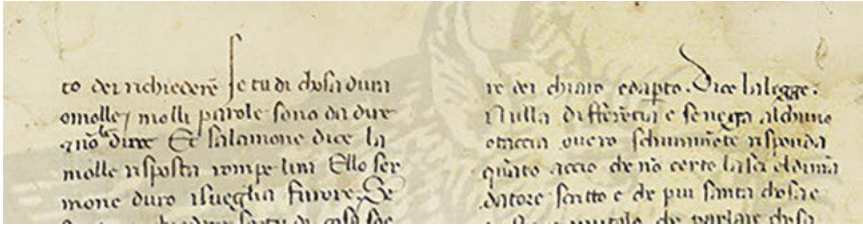 to dei richiederē se tu di chosa dura
o molle, molli parole sono da dire
Et salamone dice la
molle risposta rompe lira Ello ser
mone duro isueglia furore. Se
re dei chiaro edap̱to. Dice la legge.
Nulla differēcia e se negga alchuno
otaccia overo schuramēte risponda
quāto accio che nō certo lasci eldimā
datore scritto e che piu santa chosa e
che parlare chosa